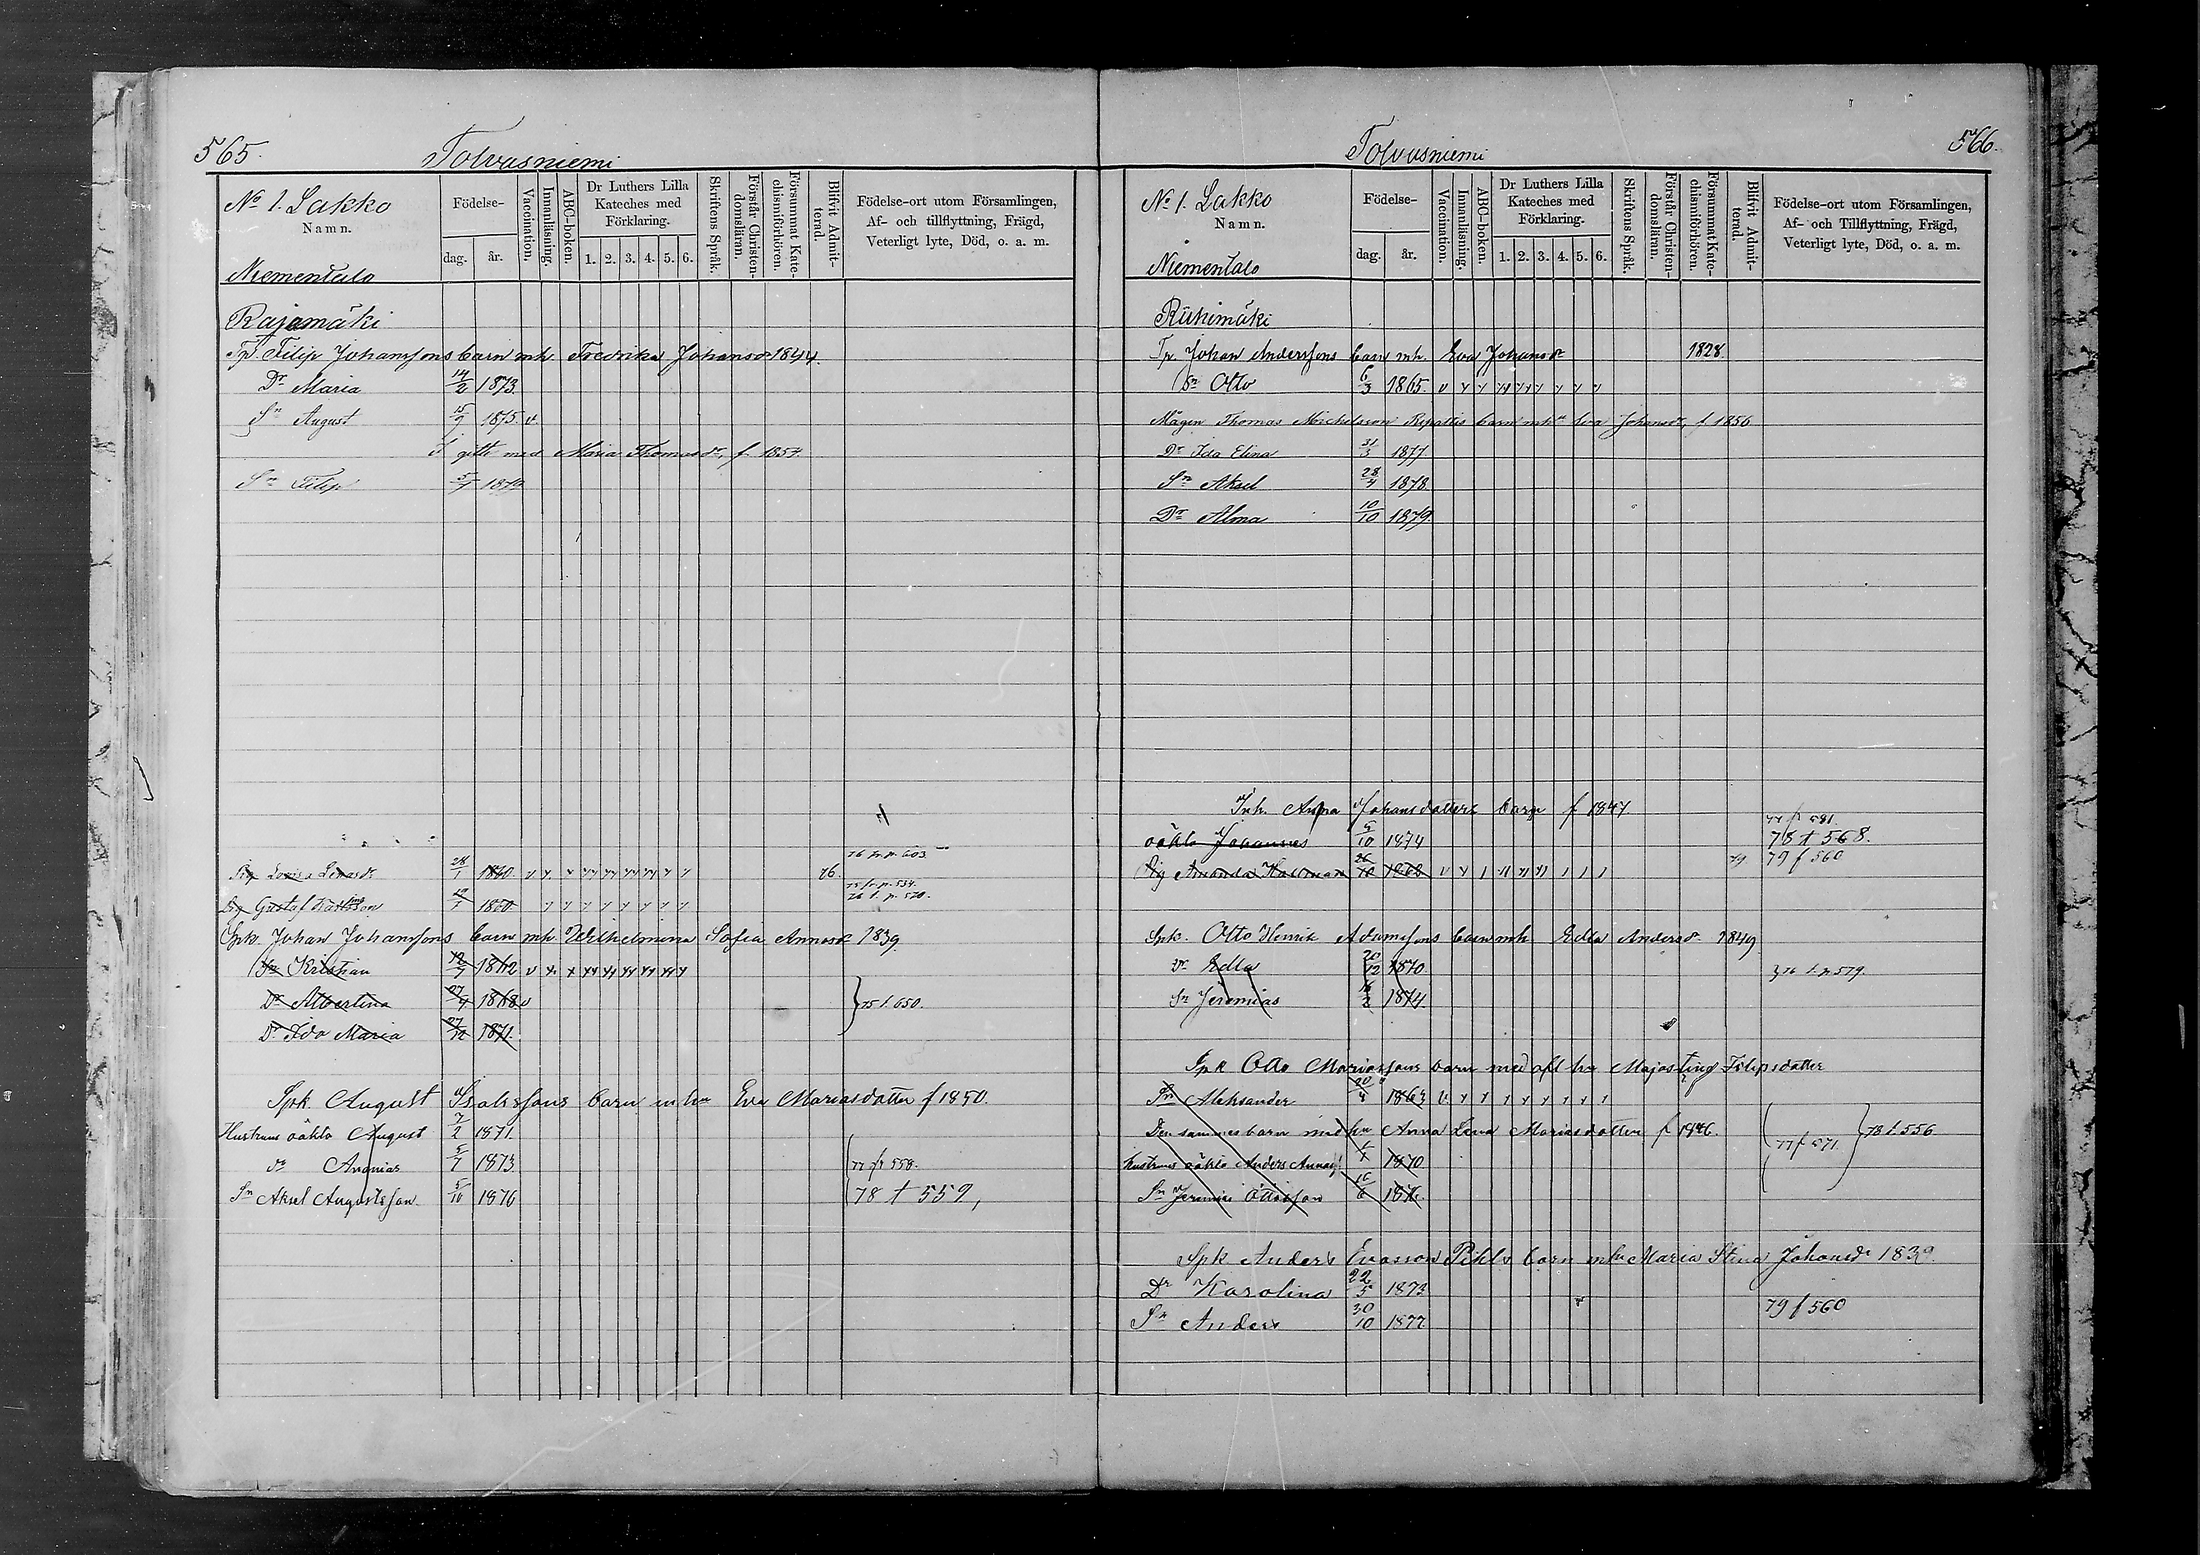 565.
Tolvasniemi
No 1. Lakko
Namn.
Niementalo
Födelse-
dag.
år.
Vaccination.
Innanläsning.
ABC-boken.
Dr Luthers Lilla
Kateches med
Förklaring.
1. 2. 3. 4. 5. 6.
Skriftens Språk.
Förstår Christen-
domsläran.
Försummat Kate-
chismiförhören.
Blifvit Admit-
terad.
Födelse-ort utom Församlingen,
Af- och tillflyttning, Frägd,
Veterligt lyte, Död, o. a. m.
Rajamäki
Tp. Filip Johanssons barn mh. Fredrika Johansdr 1844.
Dr Maria 14/2 1873.
Sn August 15/9 1875. v
gift med Maria Thomasdr, f. 1854.
Sn Filip 5/7
76 fr. p. 603.
Pig Lovisa 28/1 1860 76.
75 fr. p. 534.
76 t. p. 520.
Dg Gustaf 1860.
Spk. Johan Johanssons barn mh. Wilhelmina Sofia Annasdr 1839.
Sn Kristian 12/7 1862
Dr Albertina 27/4 1868 v
75 t. 650.
Dr Ida Maria 27/12 1871.
Spk. August Isakssons barn m hu Eva Mariasdotter f 1850.
Hustruns oäkta August 7/2 1871.
dr Ananias 5/7 1873
77 fr 558.
Sn Aksel Augustsson. 5/10 1876
78 t 559,
566.
Tolvasniemi
No 1. Lakko
Namn.
Niementalo
Födelse-
dag.
år.
Vaccination.
Innanläsning.
ABC-boken.
Dr Luthers Lilla
Kateches med
Förklaring.
1. 2. 3. 4. 5. 6.
Skriftens Språk.
Förstår Christen-
domsläran.
Försummat Kate-
chismiförhören.
Blifvit Admit-
terad.
Födelse-ort utom Församlingen,
Af- och Tillflyttning, Frägd,
Veterligt lyte, Död, o. a. m.
Riihimäki
Tp. Johan Anderssons barn mh. Eva Johansdr 1828.
Sn Otto 6/3 1865.
Mågen Thomas Michelsson Repattis barn mhu Eva Johansdr, f 1856
Dr Ida Elina 31/3 1877.
Sn Aksel 28/4 1878.
Dr Alma 10/10 1879.
Inh. Anna Johansdotters barn f 1847.
77 f 581.
oäkta Johannes 5/10 1874
78 t 568.
Pig Amanda Hallman 26/10 1862 79
79 f 560
Spk. Otto Henrik Adamssons barn mh Edla Andersdr 1849
Dr Edla 20/12 1870.
76 t. p 579.
Sn Jeremias 16/2 1874.
Spk Otto Mariassons barn med afl hu Majastina Filipsdotter
Sn Aleksander 20/4 1863
Den sammes barn med hu Anna Lena Mariasdotter f 1846.
77 f 571.
78 t. 556
hustruns oäkta Anders 1870
Sn Jeremias Ottosson 16/6 1876.
Spk Anders Evasson Pihls barn mhu Maria Stina Johansdr 1839.
Dr Karolina 22/5 1873
79 f 560
Sn Anders 30/10 1877